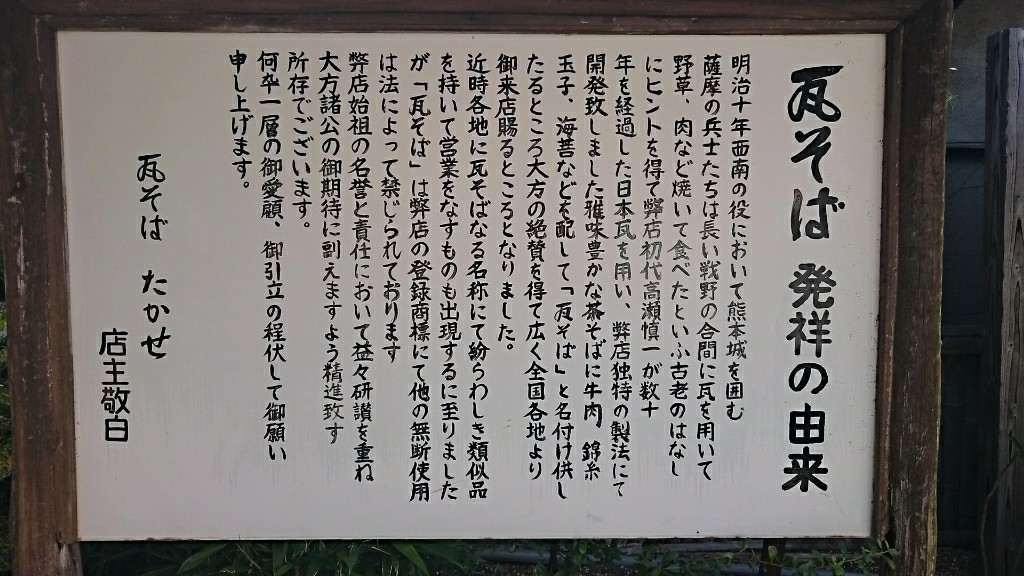 瓦そば 発祥の由来
明治十年西南の役において熊本城を囲む
薩摩の兵士たちは長い戦野の合間に瓦を用いて
野草、肉など焼いて食べたといふ古老のはなし
にヒントを得て弊店初代高瀬慎一が数十
年を経過した日本瓦を用い、弊店独特の製法にて
開発致しました雅味豊かな茶そばに牛肉 錦糸
玉子、海苔などを配して「瓦そば」と名付け供し
たるところ大方の絶賛を得て広く全国各地より
御来店賜るところとなりました。
近時各地に瓦そばなる名称にて紛らわしき類似品
を持いて営業をなすものも出現するに至りました
が「瓦そば」は弊店の登録商標にて他の無断使用
は法によって禁じられております
弊店始祖の名誉と責任において益々研讃を重ね
大方諸公の御期待に副えますよう精進致す
所存でございます。
何卆一層の御愛顧、御引立の程伏して御願い
申し上げます。
瓦そば たかせ
店主敬白